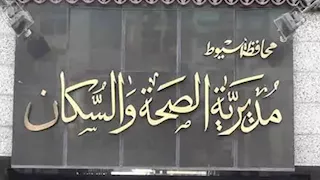 محافظة أسيوط
مُدِيريَّة الصحَة وَالسُّكان